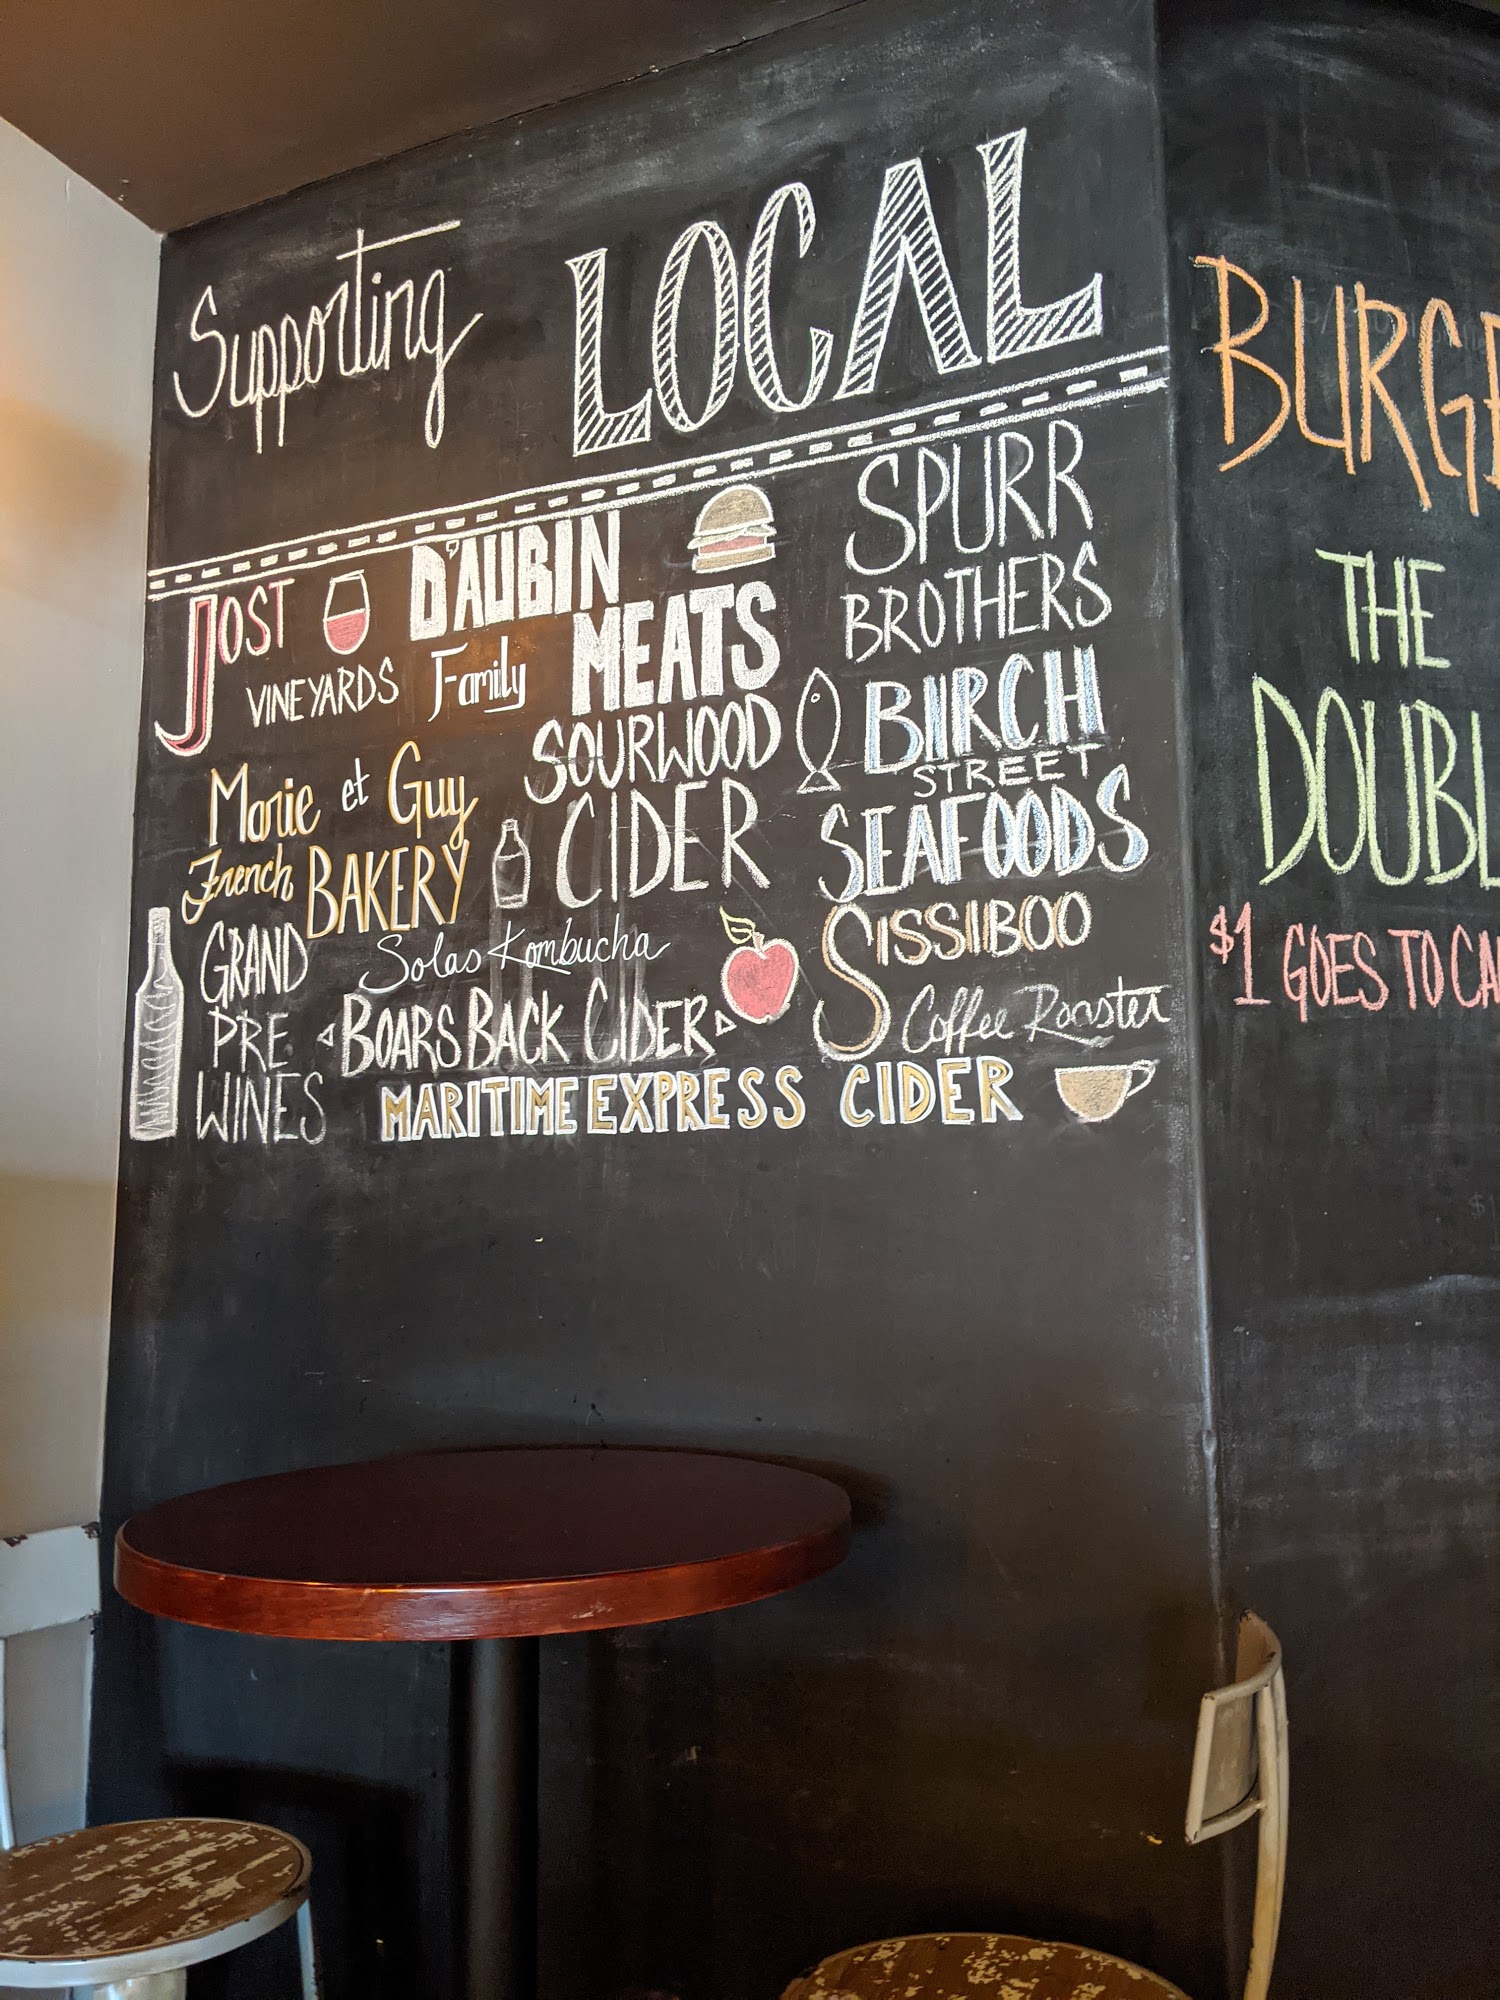 Supporting LOCAL
JOST
VINEYARDS
D'AUBIN
Family MEATS
SPURR
BROTHERS
Marie et Guy
French BAKERY
SOURWOOD
CIDER
BIRCH
STREET
SEAFOODS
GRAND
PRE
WINES
Solas Kombucha
BOARS BACK CIDER
SISSIBOO
Coffee Roaster
MARITIME EXPRESS CIDER
BURGE
THE
DOUBL
$1 GOES TO CA